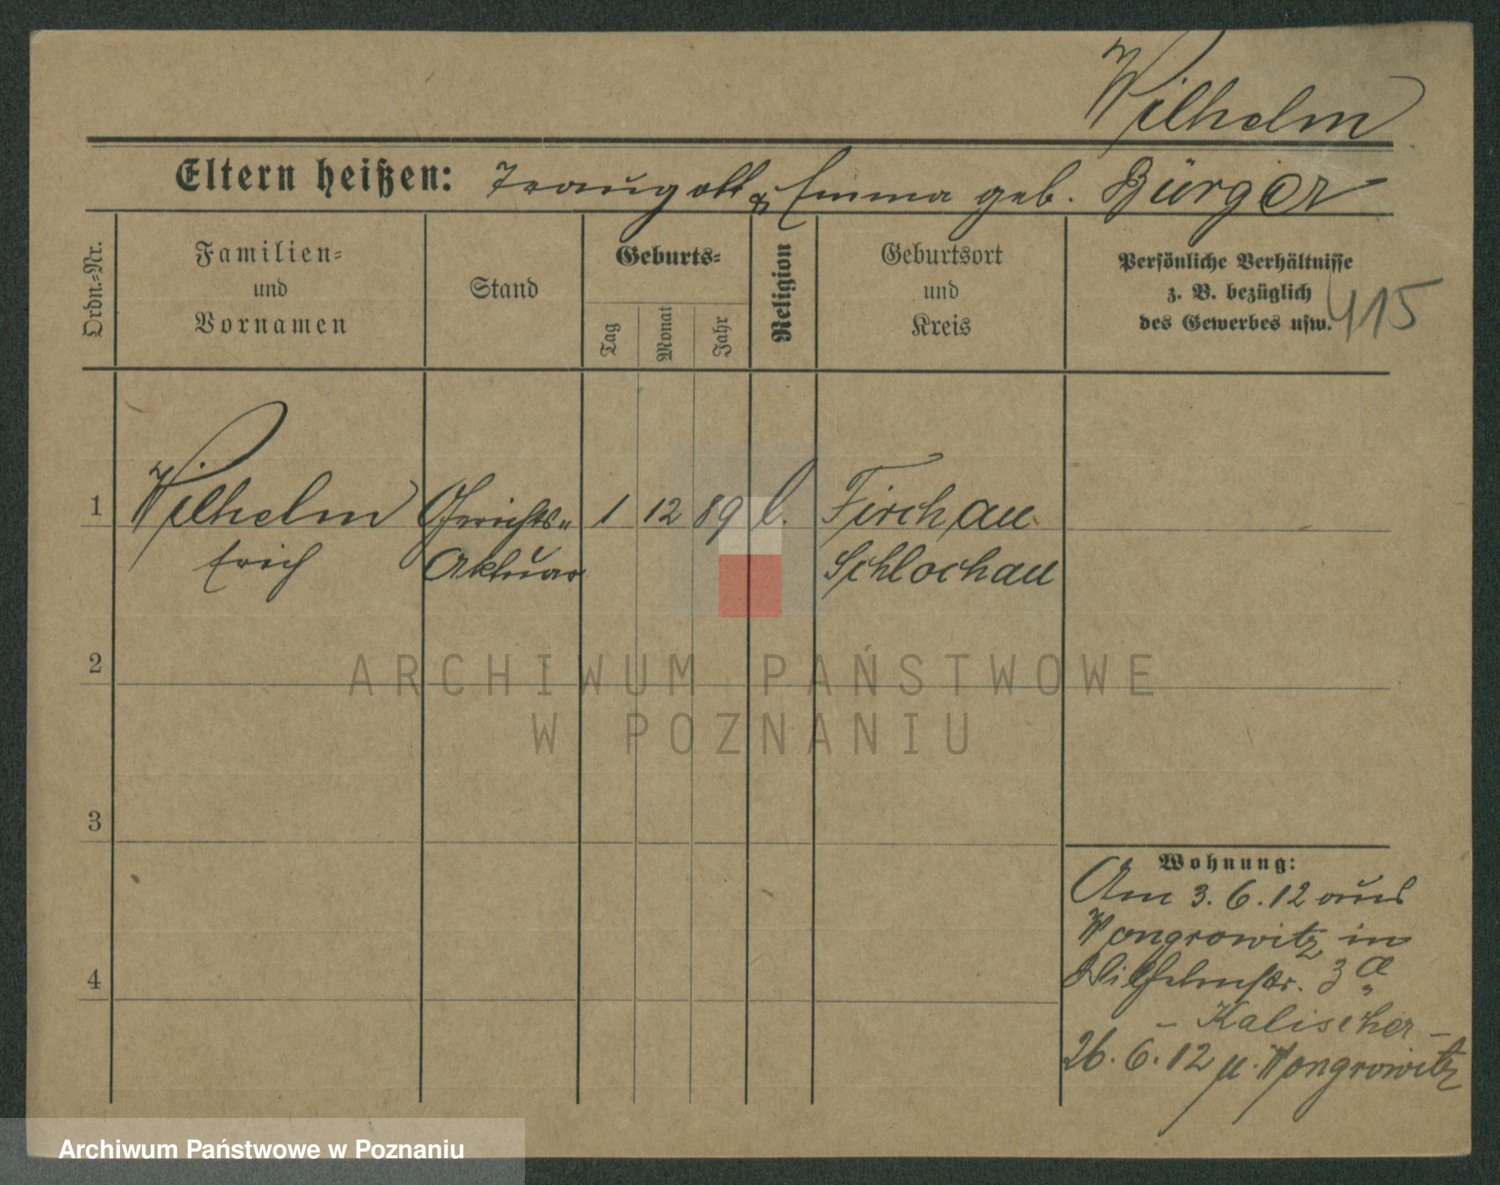 Wilhelm
Eltern heißen: Traugott & Emma geb. Bürger
Ordn.-Nr.
Familien-
und
Vornamen
Stand
Geburts-
Tag
Monat
Jahr
Religion
Geburtsort
und
Kreis
Persönliche Verhältnisse
z. B. bezüglich
des Gewerbes usw.
415
1 Wilhelm Gerichts- 1 12 89 l. Firchau
Erich Aktuar Schlochau
2
ARCHIWUM PAŃSTWOWE
W POZNANIU
3
Wohnung:
Am 3. 6. 12 aus
Wongrowitz in
Wilhelmstr. 3 a
4
- Kalischer -
26. 6. 12 n. Wongrowitz
Archiwum Państwowe w Poznaniu